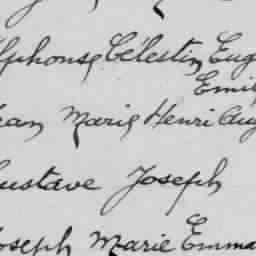 lphonse Célestin Eug
Emi
ean Marie Henri Aug
ustave Joseph
oseph Marie Emma